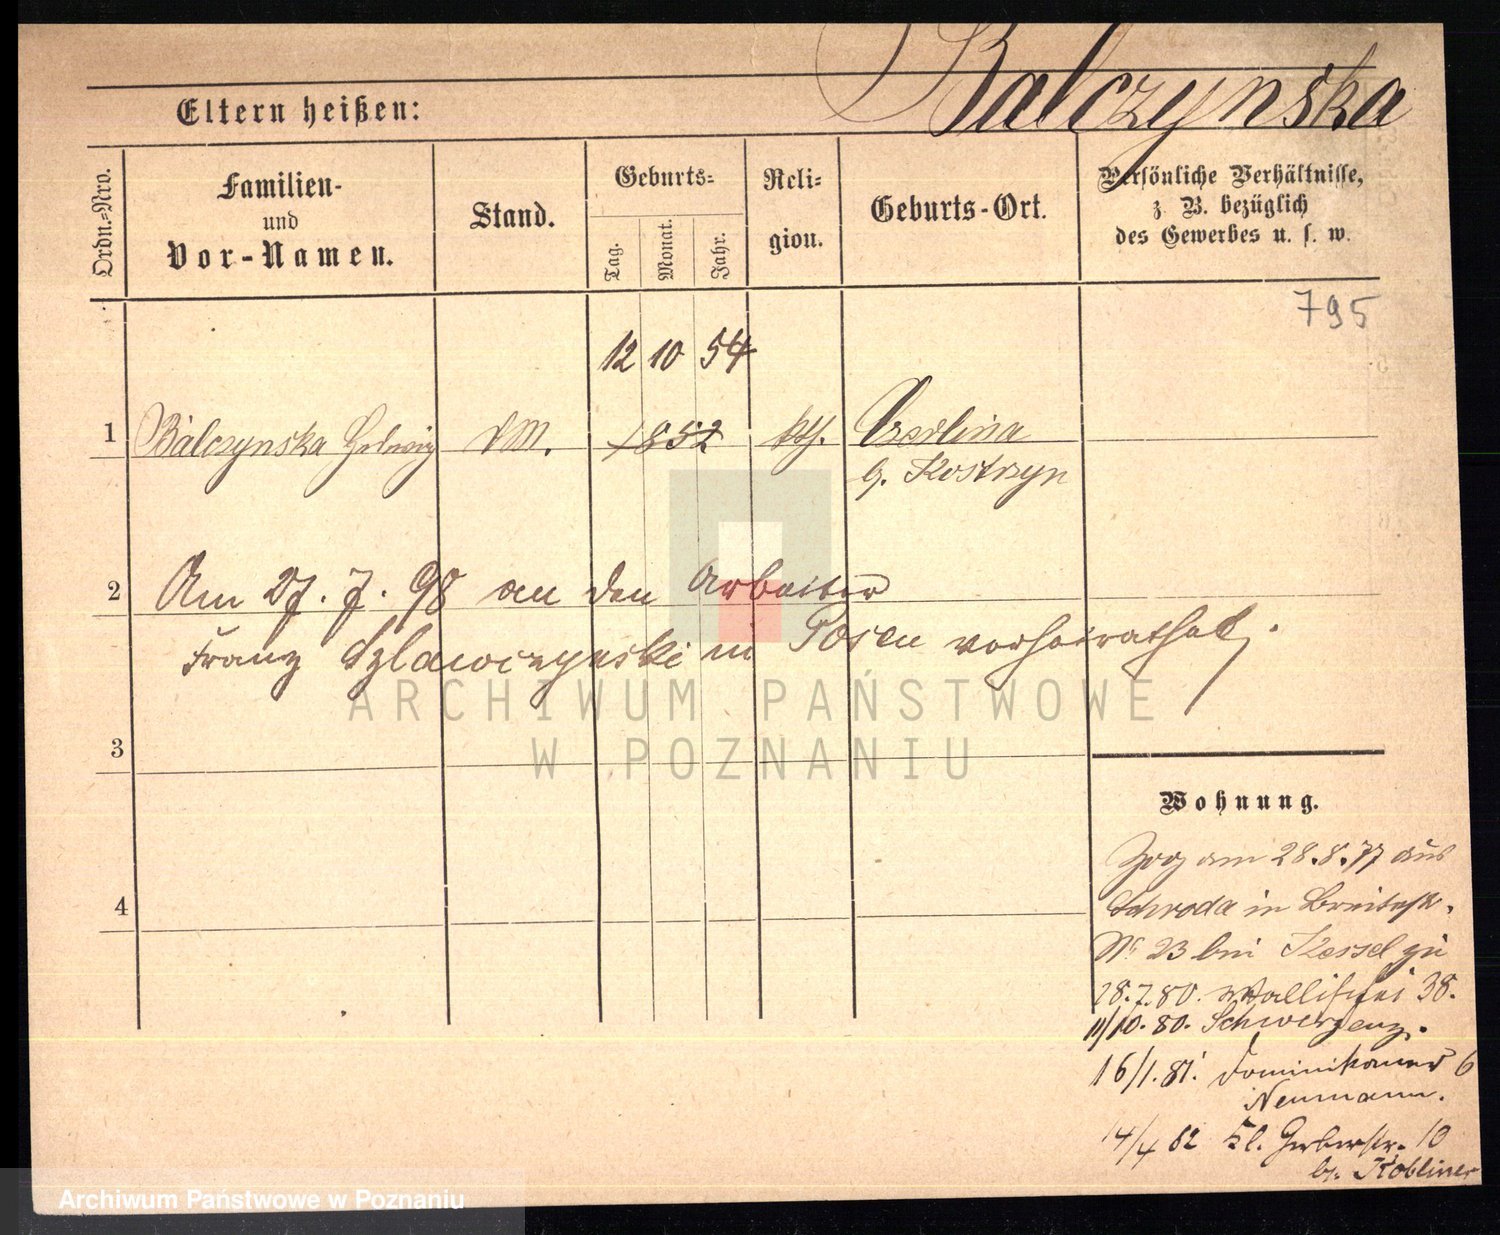 Balczynska
Eltern heißen:
Ordn.=Nro.
Familien-
und
Vor-Namen.
Stand.
Geburts=
Tag.
Monat.
Jahr.
Reli=
gion.
Geburts-Ort.
Persönliche Verhältnisse,
z. B. bezüglich
des Gewerbes u. s. w.
795
12 10 54
1 Balczynska Hedwig DM. 1852 kth.
b. Kostrzyn
2 Am 27. 7. 98 an den Arbeiter
Franz Szlawczynski in Posen verheirathet.
3
Wohnung.
Zog am 28.8.77 aus
4
Schroda in Breitestr.
No 23 bei Kessel zu
28.7.80. Wallischei 38.
11/10.80. Schwersenz.
16/1.81. Dominikaner 6
Neumann.
14/4 82 Kl. Gerberstr. 10
b. Kobliner
ARCHIWUM PAŃSTWOWE
W POZNANIU
Archiwum Państwowe w Poznaniu